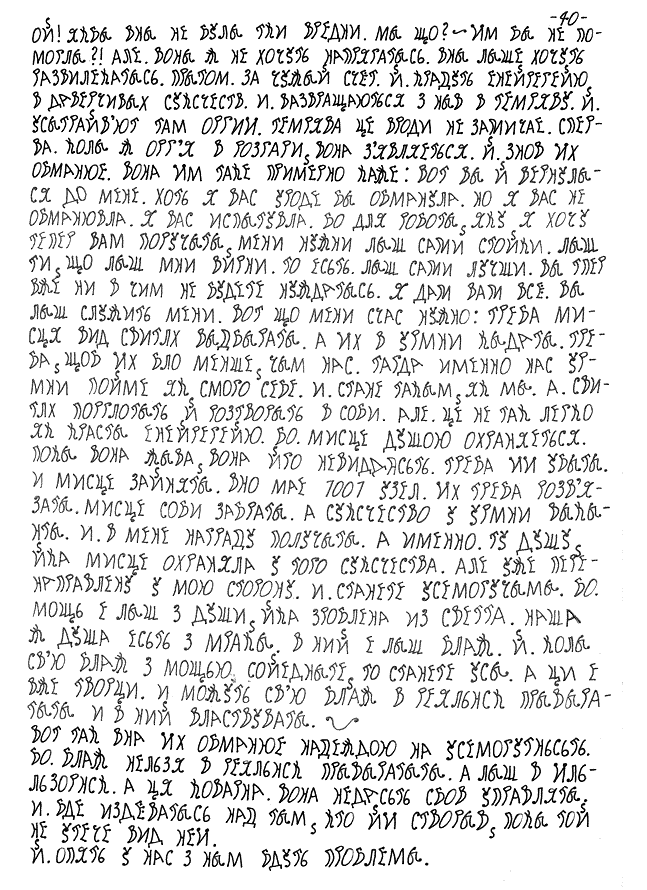 -40-
ОЙ! ЯКБЫ ВНЫ НЕ БУЛЫ ТКИ ВРЕДНИ. МЫ ЩО? ~ ИМ БЫ НЕ ПО-
МОГЛЫ?! АЛЕ. ВОНЫ Ж НЕ ХОЧУТЬ НАПРЯГАТЫСЬ. ВНЫ ЛЫШЕ ХОЧУТЬ
РАЗВИЛЕКАТЫСЬ. ПЫТОМ. ЗА ЧУЖЫЙ СЧЕТ. Й. КРАДУТЬ ЕНЕЙРЕГЕЙЮ,
В ДОВЕРЧИВЫХ СУЩСЧЕСТВ. И. ВАЗВРАЩАЮТЬСЯ З НЫВ В ТЕМРЯВУ. Й.
УСЫТРАЙВ'ЮТ ТАМ ОРГИИ. ТЕМРЯВА ЦЕ ВРОДИ НЕ ЗАМИЧАЕ. СПЕР-
ВА. КОЛЫ Ж ОРГ'Я В РОЗГАРИ, ВОНА З'ЯВЛЯЕТЬСЯ. Й. ЗНОВ ИХ
ОБМАНЮЕ. ВОНА ИМ ТАКЕ ПРИМЕРНО КАЖЕ: ВОТ ВЫ Й ВЕРНУЛЫ-
СЯ ДО МЕНЕ. ХОТЬ Я ВАС УРОДЕ БЫ ОБМАНУЛА. НО Я ВАС НЕ
ОБМАНЮВЛА. Я ВАС ИСПЫТУВЛА. БО ДЛЯ РОБОТЫ, ЯКУ Я ХОЧУ
ТЕПЕР ВАМ ПОРУЧЫТЫ, МЕНИ НУЖНИ ЛЫШ САМИ СТОЙКИ. ЛЫШ
ТИ, ЩО ЛЫШ МНИ ВИРНИ. ТО ЕСЬТЬ. ЛЫШ САМИ ЛУЧШИ. ВЫ ТПЕР
ВЖЕ НИ В ЧИМ НЕ БУДЕТЕ НУЖДАТЫСЬ. Я ДАМ ВАМ ВСЁ. ВЫ
ЛЫШ СЛУЖИТЬ МЕНИ. ВОТ ЩО МЕНИ СЧАС НУЖНО: ТРЕБА МИ-
СЦЯ ВИД СВИТЛХ ВЫДБЫРАТЫ. А ИХ В УРМНИ КЫДАТЫ. ТРЕ-
БА, ЩОБ ИХ БЛО МЕНЩЕ, ЧЫМ НАС. ТАГДА ИМЕННО НАС УР-
МНИ ПОЙМЕ ЯК СМОГО СЕБЕ. И. СТАНЕ ТАКЫМ, ЯК МЫ. А. СВИ-
ТЛХ ПОГЛОТЫТЬ Й РОЗТВОРЫТЬ В СОБИ. АЛЕ. ЦЕ НЕ ТАК ЛЕГКО
ЯК КРАСТЫ ЕНЕЙРЕГЕЙЮ. БО. МИСЦЕ ДУШОЮ ОХРАНЯЕТЬСЯ.
ПОКЫ ВОНА ЖЫВА, ВОНА ЙГО НЕВИДДАСЬТЬ. ТРЕБА ИИ УБЫТЫ.
И МИСЦЕ ЗАЙНЯТЫ. ВНО МАЕ 1001 УЗЕЛ. ИХ ТРЕБА РОЗВ'Я-
ЗАТЫ. МИСЦЕ СОБИ ЗАБРАТЫ. А СУЩСЧЕСТВО У УРМНИ ВЫКЫ-
НТЫ. И. В МЕНЕ НАГРАДУ ПОЛУЧЫТЫ. А ИМЕННО. ТУ ДУШУ,
ЙКА МИСЦЕ ОХРАНЯЛА У ТОГО СУЩСЧЕСТВА. АЛЕ УЖЕ ПЕРЕ-
НАПРАВЛЕНУ У МОЮ СТОРОНУ. И. СТАНЕТЕ УСЕМОГУЧЫМЫ. БО.
МОЩЬ Е ЛЫШ З ДУШИ, ЙКА ЗРОБЛЕНА ИЗ СВЕТТА. НАША
Ж ДУША ЕСЬТЬ З МРАКЫ. В НИЙ Е ЛЫШ ВЛАЖ. Й. КОЛЫ
СВ'Ю ВЛАЖ З МОЩЬЮ СОЙЕДНЫТЕ, ТО СТАНЕТЕ УСЫ. А ЦИ Е
ВЖЕ ТВОРЦИ. И МОЖУТЬ СВ'Ю ВЛАЖ В РЕЯЛЬНСЬ ПРЫВЫРА-
ТЫТЫ И В НИЙ ВЛАСТВУВАТЫ.
ВОТ ТАК ВНА ИХ ОБМАНЮЕ НАДЕЖДОЮ НА УСЕМОГУТНЬСЬТЬ.
БО. ВЛАЖ НЕЛЬЗЯ В РЕЯЛЬНСЬ ПРЫВЫРАТЫТЫ. А ЛЫШ В ИЛЬ-
ЛЬЗОРНСЬ. А ЦЯ КОВАРНА. ВОНА НЕДАСЬТЬ СБОВ УПРАВЛЯТЫ,
И. БДЕ ИЗДЕВАТЫСЬ НАД ТЫМ, КТО ИИ СТВОРЫВ, ПОКЫ ТОЙ
НЕ УТЕЧЕ ВИД НЕИ.
Й. ОПЯТЬ У НАС З НЫМ БДУТЬ ПРОБЛЕМЫ.